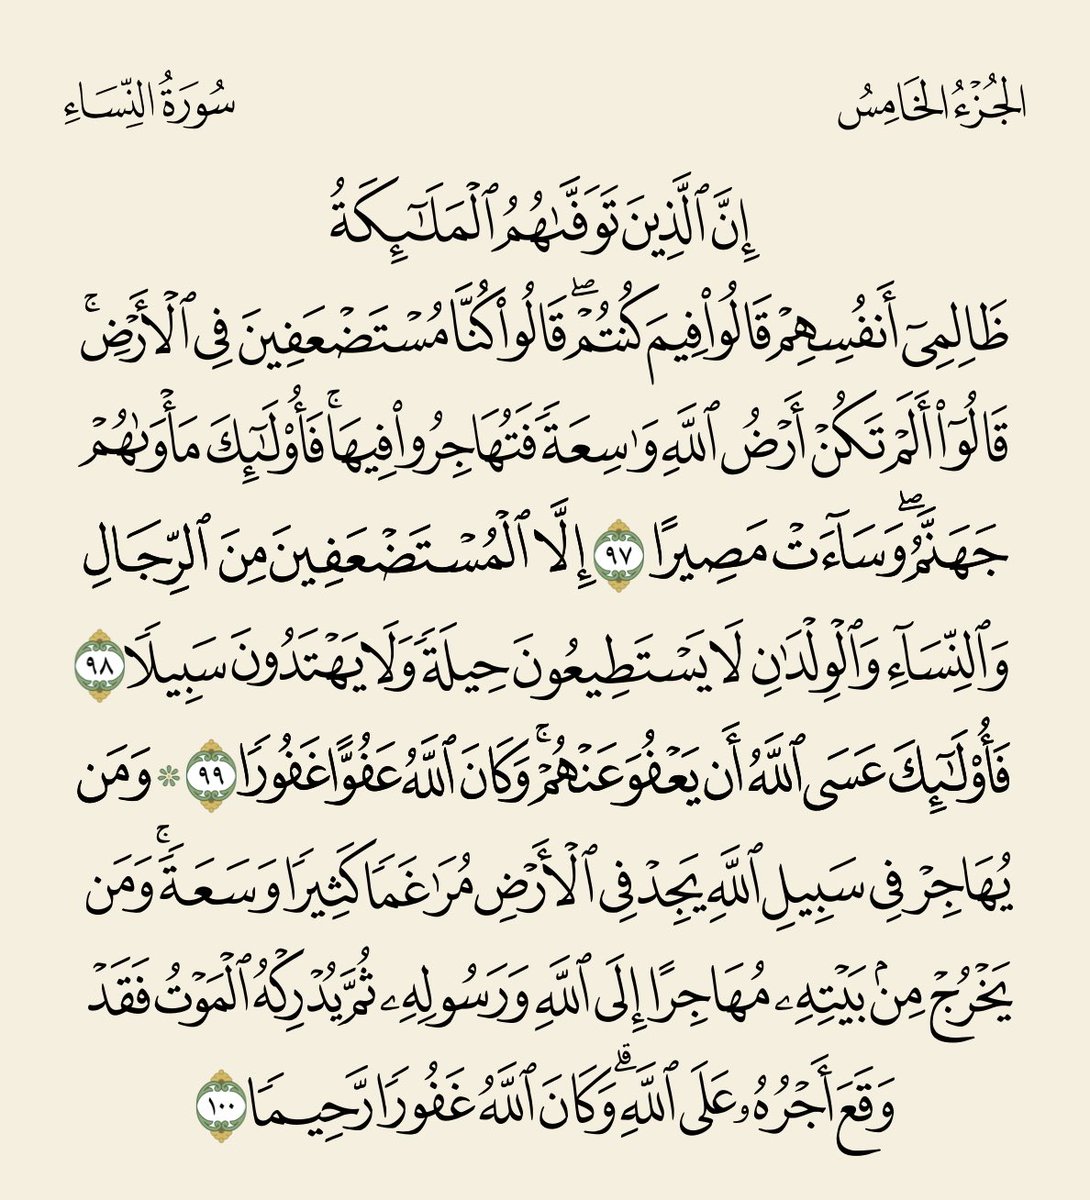 الجُزْءُ الخَامِسُ
سُورَةُ النِّسَاءِ
إِنَّ ٱلَّذِينَ تَوَفَّىٰهُمُ ٱلْمَلَـٰٓئِكَةُ
ظَالِمِىٓ أَنفُسِهِمْ قَالُوا۟ فِيمَ كُنتُمْ ۖ قَالُوا۟ كُنَّا مُسْتَضْعَفِينَ فِى ٱلْأَرْضِ ۚ
قَالُوٓا۟ أَلَمْ تَكُنْ أَرْضُ ٱللَّهِ وَٰسِعَةً فَتُهَاجِرُوا۟ فِيهَا ۚ فَأُو۟لَـٰٓئِكَ مَأْوَىٰهُمْ
جَهَنَّمُ ۖ وَسَآءَتْ مَصِيرًا ٩٧ إِلَّا ٱلْمُسْتَضْعَفِينَ مِنَ ٱلرِّجَالِ
وَٱلنِّسَآءِ وَٱلْوِلْدَٰنِ لَا يَسْتَطِيعُونَ حِيلَةً وَلَا يَهْتَدُونَ سَبِيلًا ٩٨
فَأُو۟لَـٰٓئِكَ عَسَى ٱللَّهُ أَن يَعْفُوَ عَنْهُمْ ۚ وَكَانَ ٱللَّهُ عَفُوًّا غَفُورًا ٩٩ ۞ وَمَن
يُهَاجِرْ فِى سَبِيلِ ٱللَّهِ يَجِدْ فِى ٱلْأَرْضِ مُرَٰغَمًا كَثِيرًا وَسَعَةً ۚ وَمَن
يَخْرُجْ مِنۢ بَيْتِهِۦ مُهَاجِرًا إِلَى ٱللَّهِ وَرَسُولِهِۦ ثُمَّ يُدْرِكْهُ ٱلْمَوْتُ فَقَدْ
وَقَعَ أَجْرُهُۥ عَلَى ٱللَّهِ ۗ وَكَانَ ٱللَّهُ غَفُورًا رَّحِيمًا ١٠٠